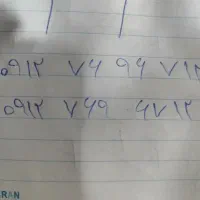 ۰۹۱۲ ۷۶ ۹۶ ۷۱۲
۰۹۱۲ ۷۶۹ ۶۷۱۲
RAN